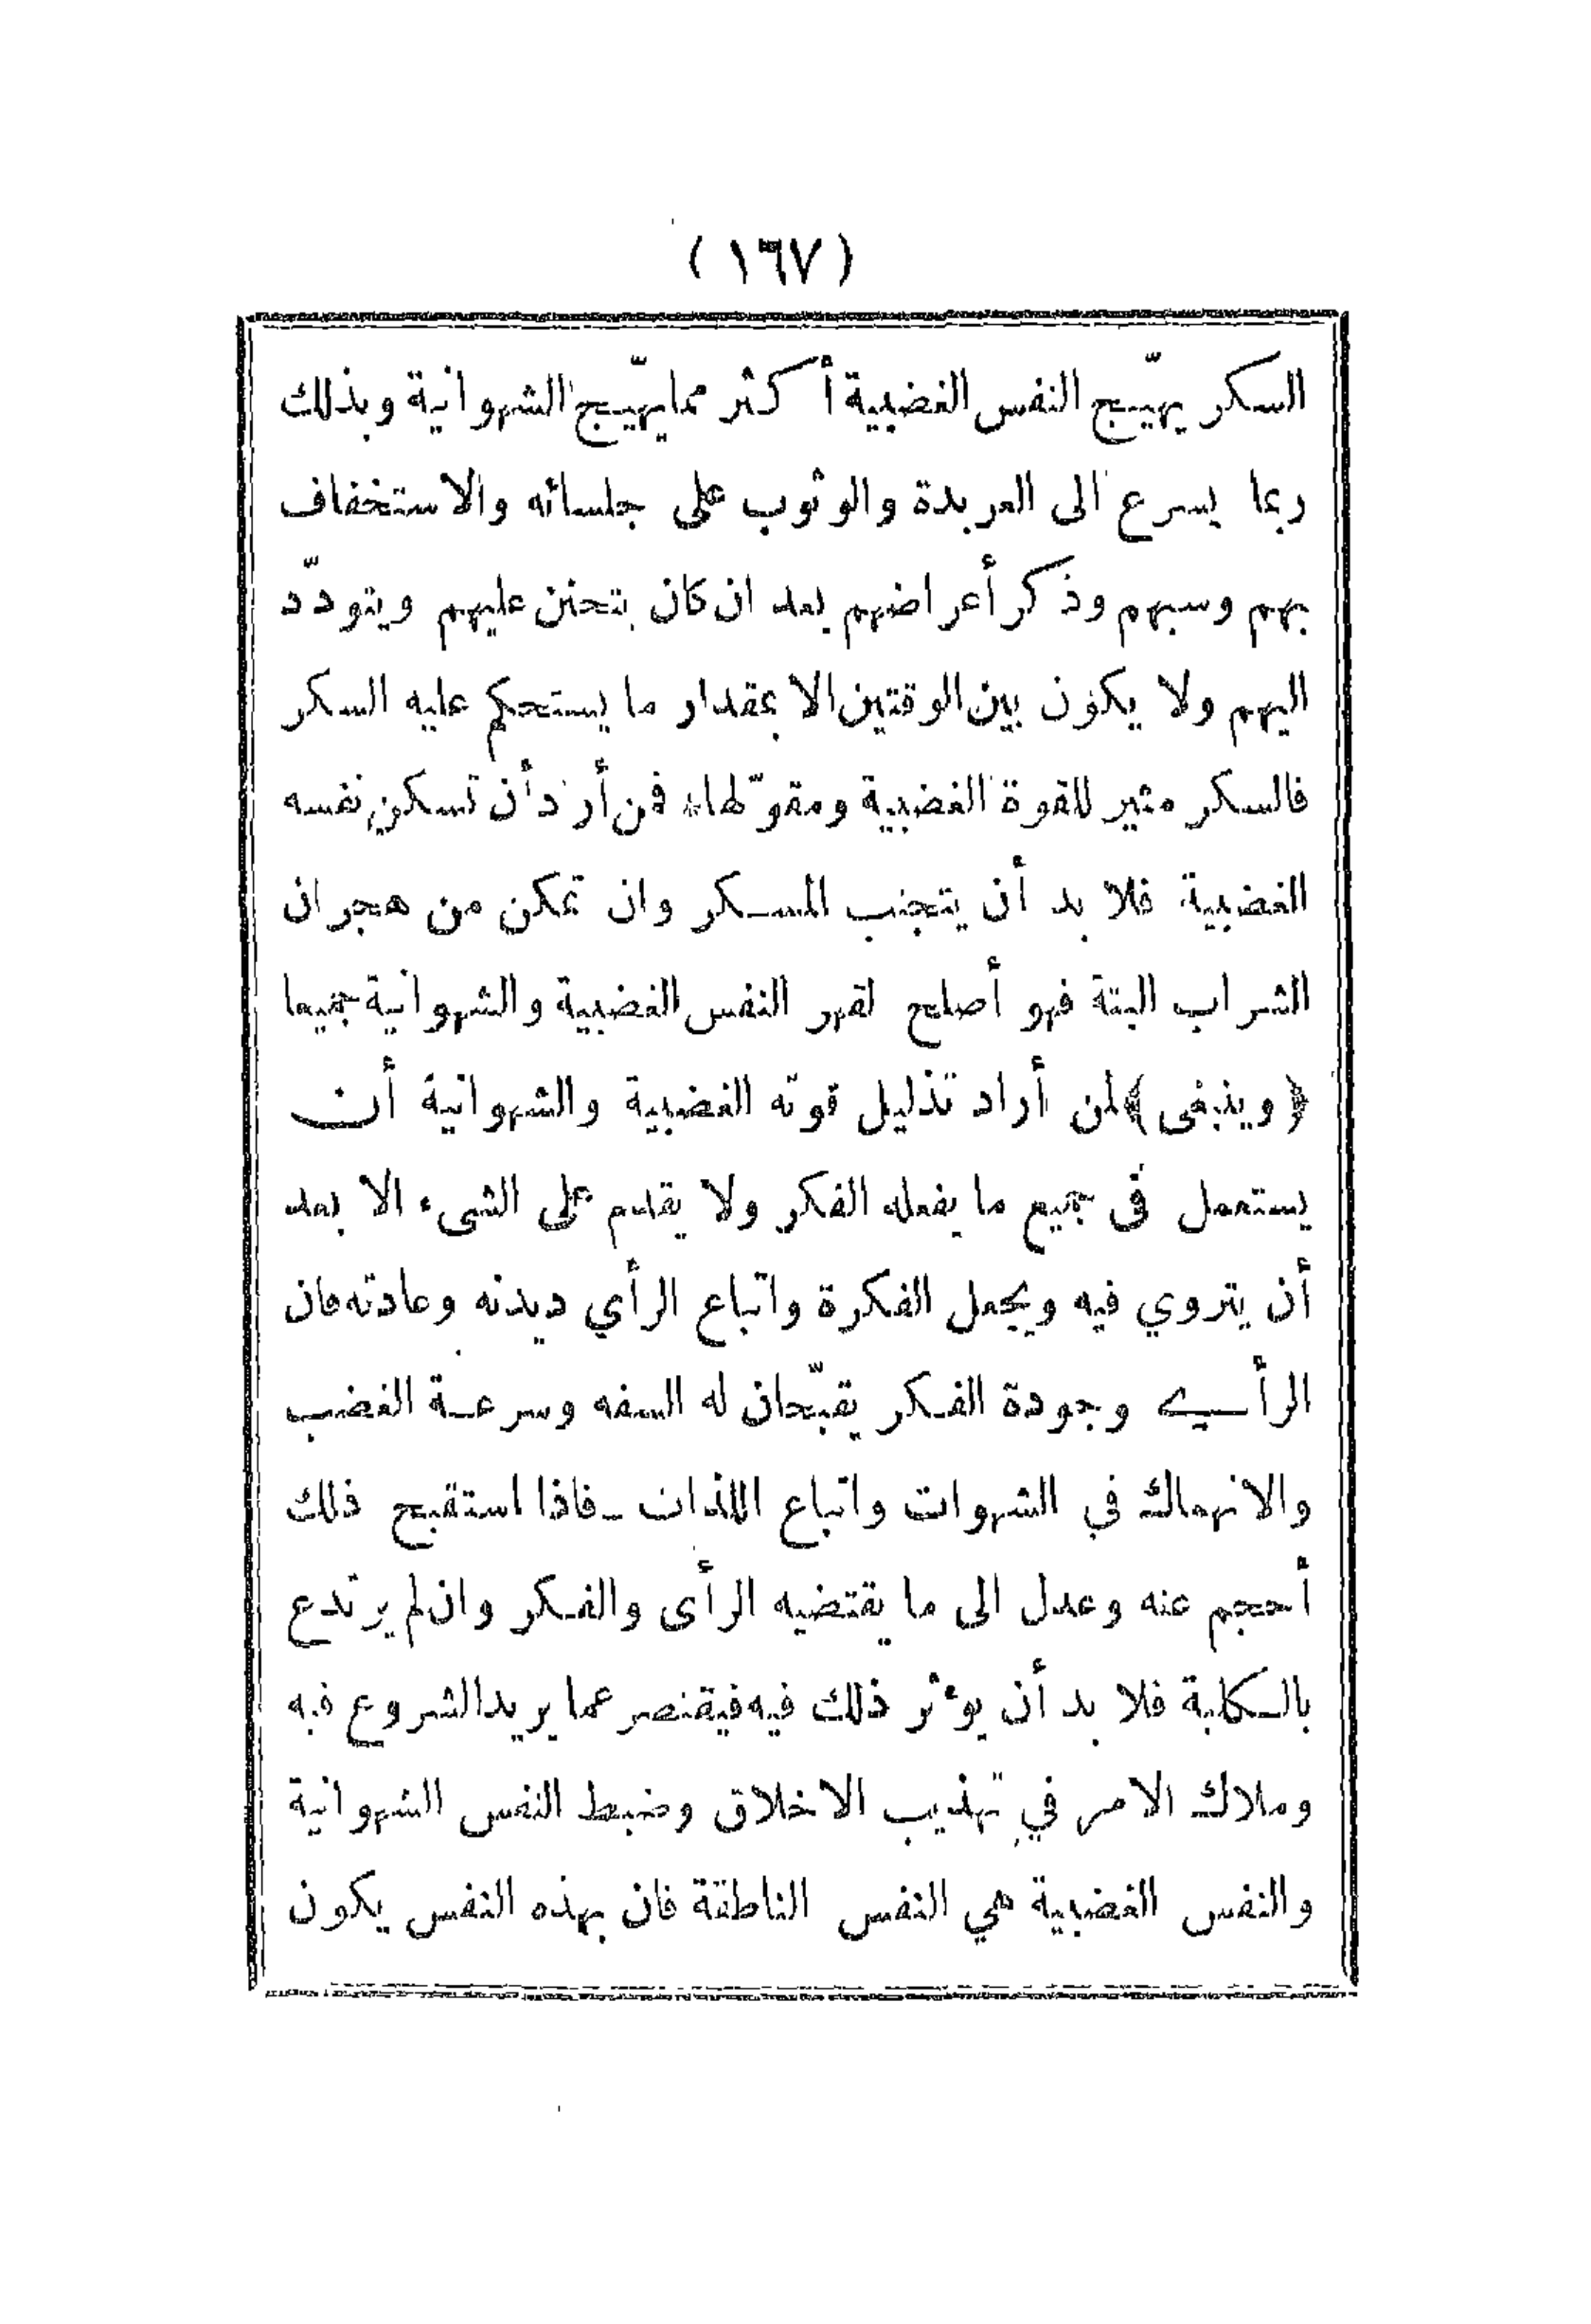 ( ١٦٧ )
السكر يهيّج النفس الغضبية أكثر ممايهيّج الشهوانية وبذلك
ربما يسرع الى العربدة والوثوب على جلسائه والاستخفاف
بهم وسبهم وذكر أعراضهم بعد ان كان يتحنن عليهم ويتودّد
اليهم ولا يكون بين الوقتين الا بمقدار ما يستحكم عليه السكر
فالسكر مثير للقوة الغضبية ومقوّ لها، فمن أراد أن تسكن نفسه
الغضبية فلا بد أن يتجنب المسكر وان تمكن من هجران
الشراب البتة فهو أصلح لقهر النفس الغضبية والشهوانية جميعا
﴿ وينبغى ﴾ لمن أراد تذليل قوته الغضبية والشهوانية أن
يستعمل فى جميع ما يفعله الفكر ولا يقدم على الشىء الا بعد
أن يتروي فيه ويجعل الفكرة واتباع الرأي ديدنه وعادته فان
الرأي وجودة الفكر يقبّحان له السفه وسرعة الغضب
والانهماك في الشهوات واتباع اللذات - فاذا استقبح ذلك
أحجم عنه وعدل الى ما يقتضيه الرأى والفكر وان لم يرتدع
بالكلية فلا بد أن يوءثر ذلك فيه فيقتصر عما يريد الشروع فيه
وملاك الامر في تهذيب الاخلاق وضبط النفس الشهوانية
والنفس الغضبية هي النفس الناطقة فان بهذه النفس يكون